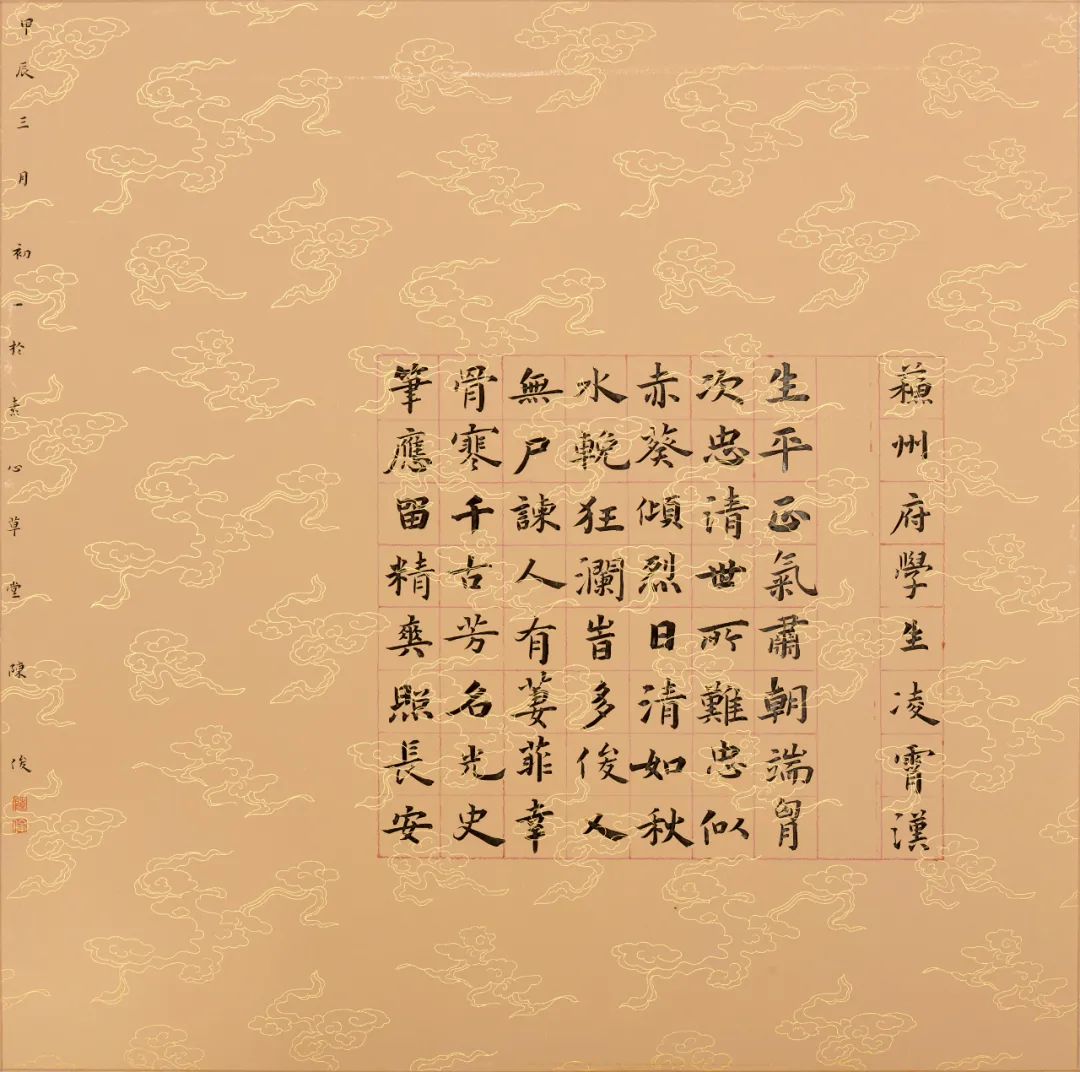 蘓州府學生凌霄漢
生平正氣肅朝端胷
次忠清世所難忠似
赤葵傾烈日清如秋
水輓狂瀾旹多俊乂
無尸諫人有萋菲幸
骨寒千古芳名光史
筆應留精爽照長安
甲辰三月初一於素心草堂陳俊